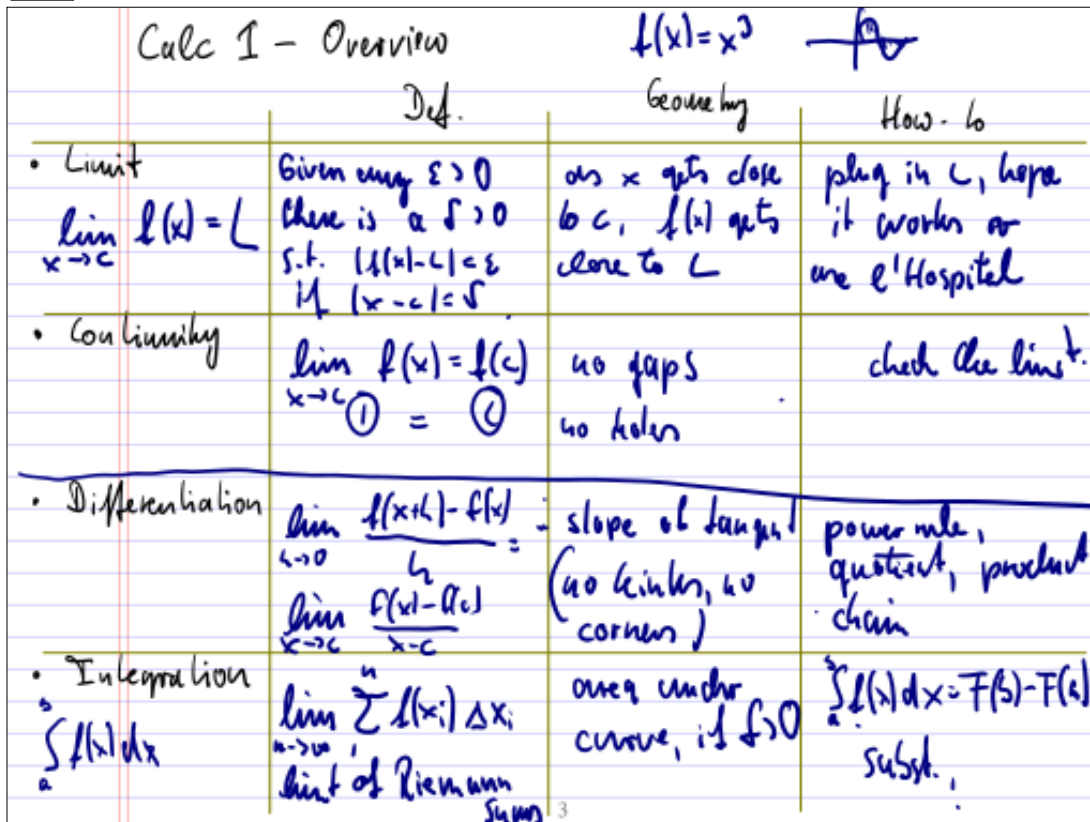 Calc 1 - Overview
f(x) = x³
Def.
Geometry
How-to
• Limit
lim f(x) = L
x→c
Given any ε > 0
there is a δ > 0
s.t. |f(x)-L| < ε
if |x-c| < δ
as x gets close
to c, f(x) gets
close to L
plug in c, hope
it works or
use l'Hospital
• Continuity
lim f(x) = f(c)
x→c
=
no gaps
no holes
check the limit.
• Differentiation
lim f(x+h) - f(x) =
h→0 h
lim f(x) - f(c)
x→c x-c
- slope of tangent
(no kinks, no
corners)
power rule,
quotient, product
chain
• Integration
b
∫ f(x) dx
a
n
lim Σ f(xᵢ) Δxᵢ
n→∞ 1
limit of Riemann
sums
area under
curve, if f>0
b
∫ f(x) dx = F(b) - F(a)
a
subst.,
3